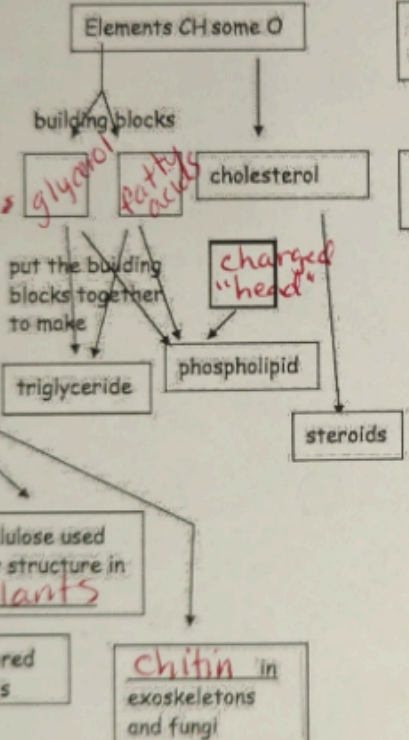 Elements CH some O
building blocks
glycerol
fatty
acids
cholesterol
put the building
blocks together
to make
charged
"head"
triglyceride
phospholipid
steroids
lulose used
structure in
lants
red
s
chitin in
exoskeletons
and fungi